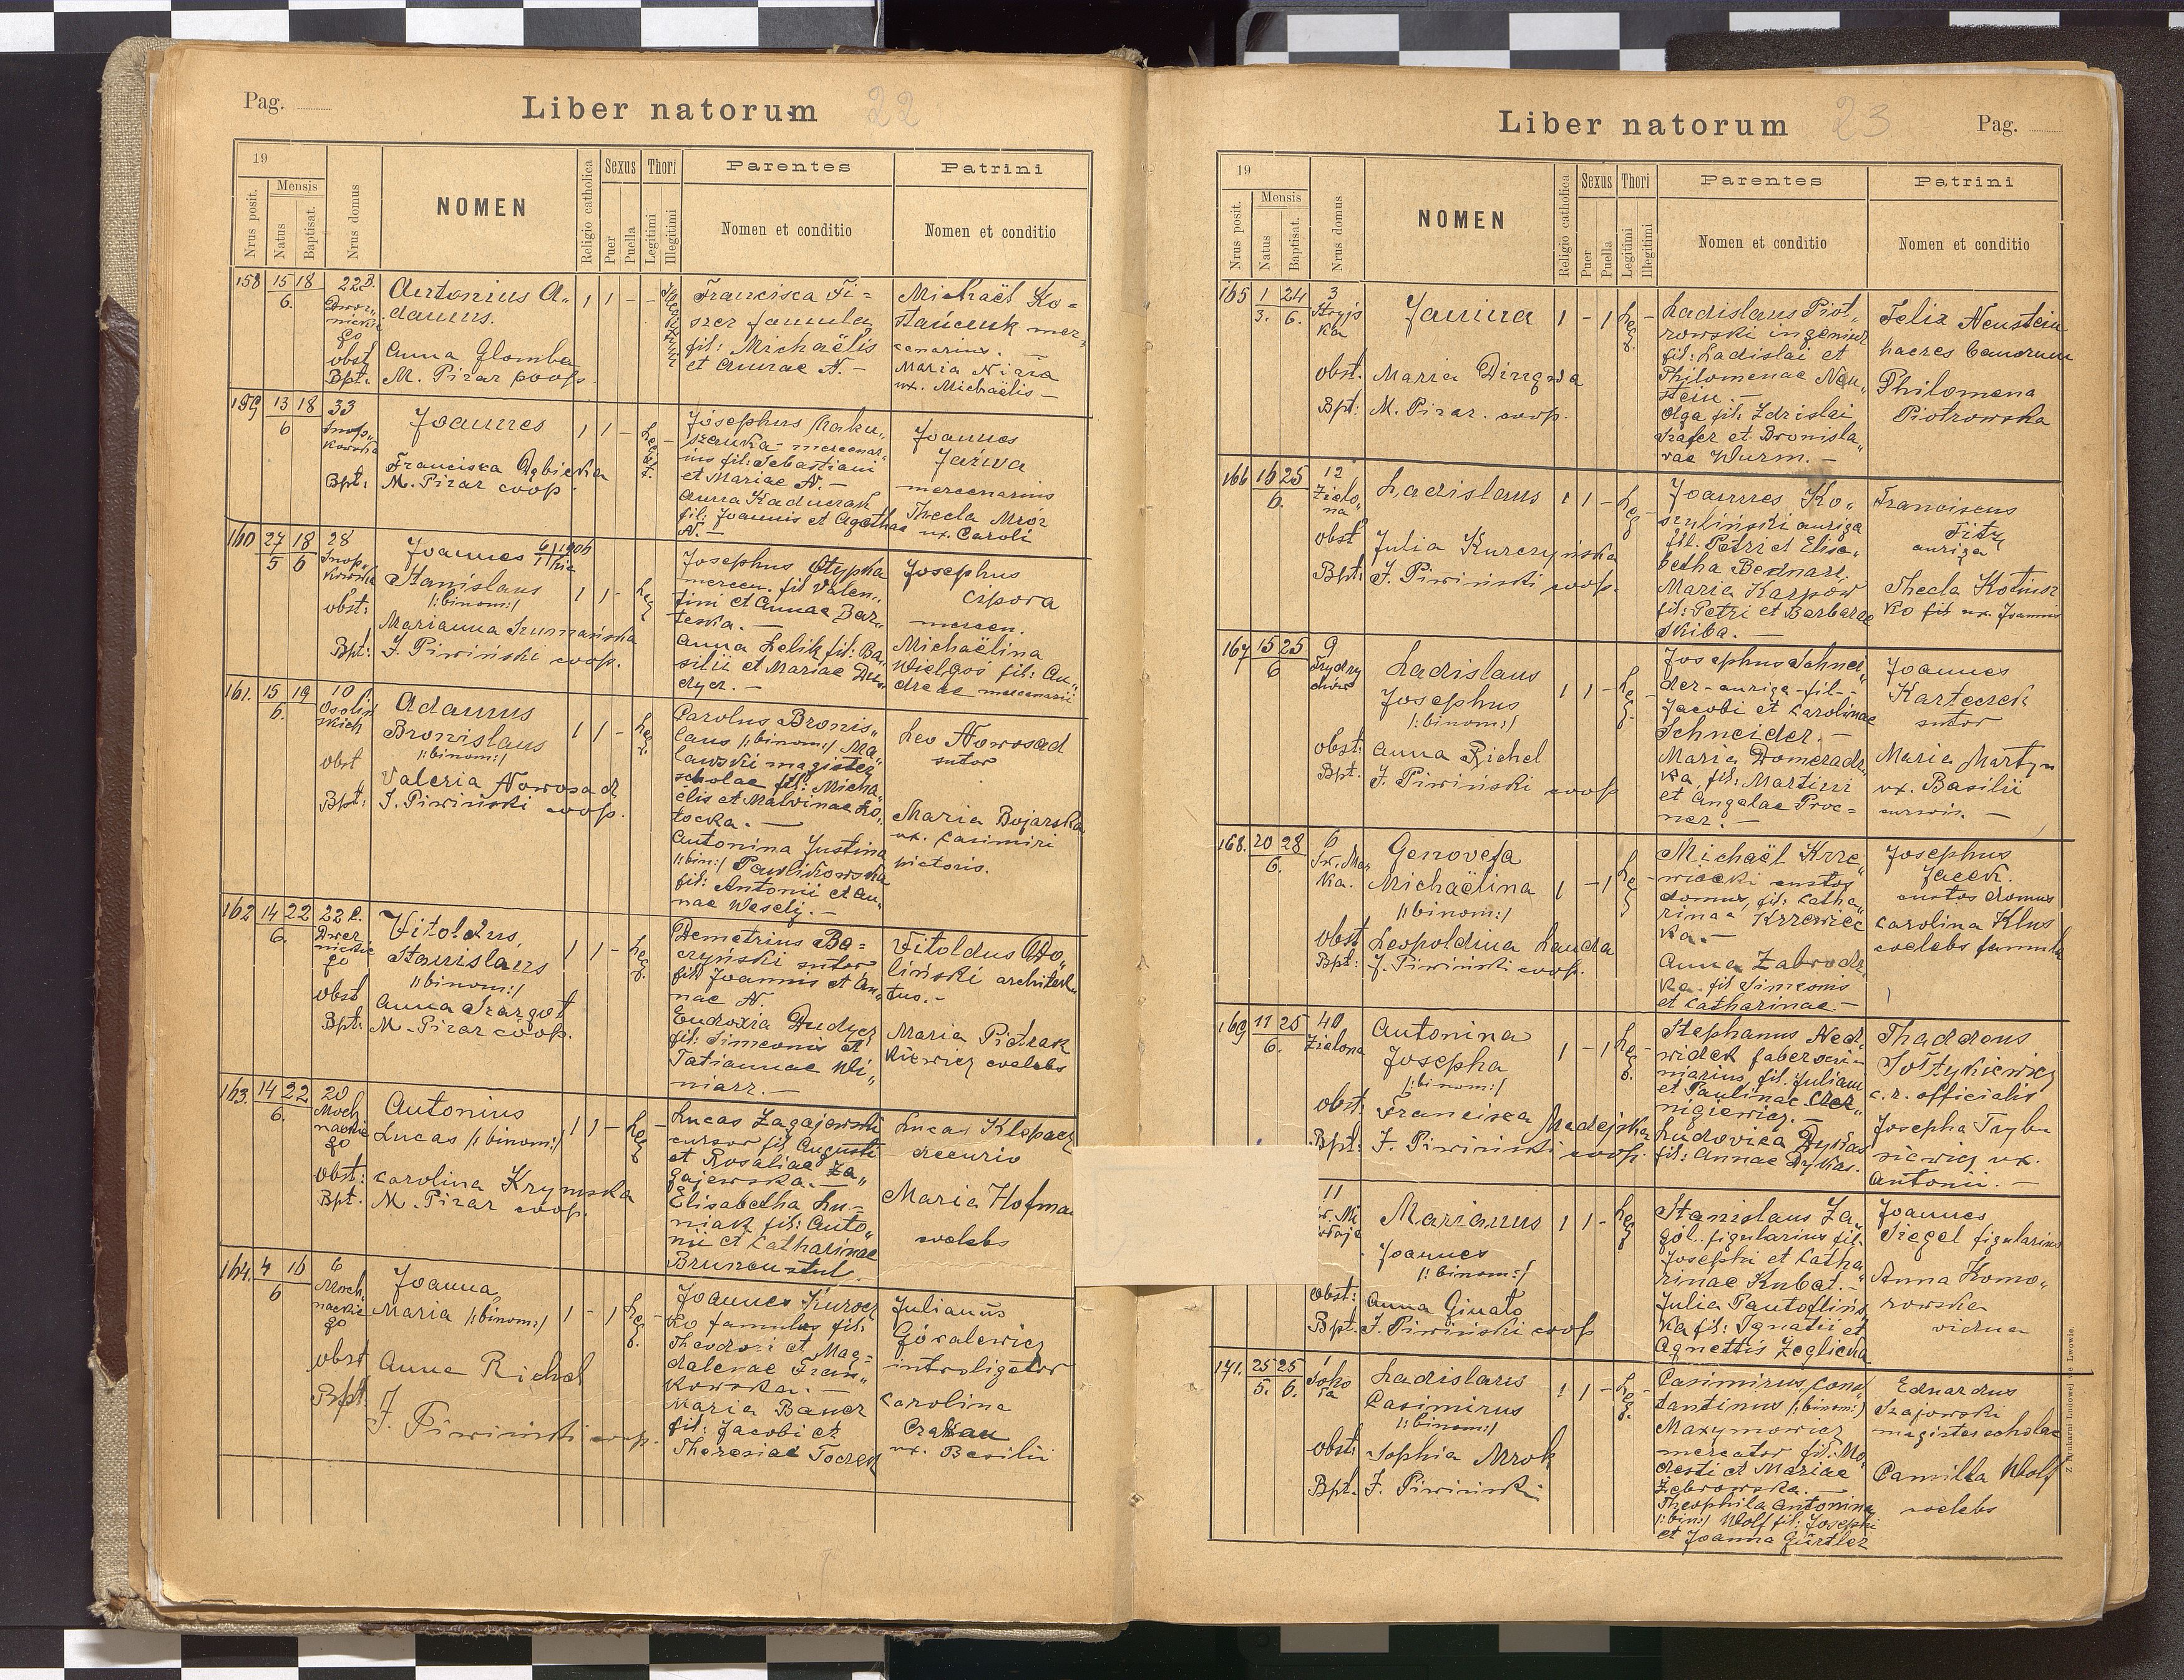 Pag.
Liber natorum 22
19
Nrus posit.
Mensis
Natus
Baptisat.
Nrus domus
NOMEN
Religio catholica
Sexus
Puer
Puella
Thori
Legitimi
Illegitimi
Parentes
Nomen et conditio
Patrini
Nomen et conditio
158 15 18 22B.
6.
Antonius A„
damus.
1 1 - -
obst Anna Glomba
Bpt: M. Pirar coop.
Francisca Fi=
szer famula
fil: Michaëlis
et Annae N. —
Michaël Ko=
stańcuk mer„
cenarius. —
Maria Nirra
ux. Michaëlis —
159 13 18 33
6
Joannes
1 1 -
Franciska Dębicka
Bpt: M. Pirar coop.
Josephus Maku„
szewka - mercenar„
ius fil: Sebastiani
et Mariae N. —
Anna Kaducrak
fil: Joannis et Agathae
N. —
Joannes
Jaźwa
mercenarius
Thecla Mróz
ux. Caroli
160 27 18 28
5 6
Joannes
Stanislaus
/:binom:/
1 1 - Leg
obst: Marianna Szumańska
Bpt: J. Piwiński coop.
Josephus Otypka
mercen. fil Valen„
tini et Annae Bar„
teska. —
Anna Lelik fil: Ba„
silii et Mariae Du„
dycr. —
Josephus
Cipora
mercen.
Michaëlina
Wielgos fil: An„
dreae mercenarii
161. 15 19 10
6.
Osoliń
skich
Adamus
Bronislaus
/:binom:/
1 1 - Leg.
obst Valeria Nowosad
Bpt: J. Piwiński coop.
Carolus Bronis„
laus /:binom:/ Ma„
lawski magister
scholae fil: Micha„
ëlis et Malvinae Ko„
tocka. —
Antonina Justina
/:bin:/ Pawlikowska
fil: Antonii et An„
nae Wesely. —
Leo Nowosad
sutor
Maria Bojarska
ux. Casimiri
pictoris.
162 14 22 22 c.
6.
Dwer
nickie
go
Vitoldus,
Stanislaus
/:binom:/
1 1 - Leg.
obst Anna Szargot
Bpt: M. Pirar coop.
Demetrius Ba=
czyński sutor
fil Joannis et An„
nae N.
Eudoxia Dudycz
fil: Simeonis et
Tatiannae Wi„
niarz. —
Vitoldus Do„
liński architek„
tus. —
Maria Pietrak
kiewicz coelebs
163. 14 22 20
6.
Moch
nackie
go
Antonius
Lucas /:binom:/
1 1 - Leg
obst: Carolina Krymska
Bpt. M. Pirar coop.
Lucas Zagajewski
cursor fil Augusti
et Rosaliae Za„
gajewska. —
Elisabetha Lu=
niak fil: Anto„
nii et Catharinae
Brunenstul.
Lucas Klopacz
decurio
Maria Hofma
coelebs
164. 4 16 6
6
Moch
nackie
go
Joanna,
Maria /:binom:/
1 - 1 Leg.
obst Anna Richel
Bpt. J. Piwiński coop.
Joannes Kurocz
ko famulus fil:
Theodori et Mag=
dalenae Fran„
kowska. —
Maria Bauer
fil: Jacobi et
Theresiae Toczek
Julianus
Góralewicz
introligator
Carolina
ux. Basilii
Liber natorum 23
Pag.
19
Nrus posit.
Mensis
Natus
Baptisat.
Nrus domus
NOMEN
Religio catholica
Sexus
Puer
Puella
Thori
Legitimi
Illegitimi
Parentes
Nomen et conditio
Patrini
Nomen et conditio
165 1 24 3
3. 6.
Stryjs
ka
Janina
1 - 1 Leg.
obst. Maria Dingwa
Bpt: M. Pirar. coop.
Ladislaus Piot„
rowski ingenieur
fil: Ladislai et
Philomenae Neu„
stein. —
Olga fil: Zdzislai
Szafer et Bronisla„
vae Wurm. —
Felix Neustein
haeres bonorum
Philomena
Piotrowska
166 16 25 12
6.
Zielo
na
Ladislaus
1 1 - Leg
obst Julia Kurczyńska
Bpt: J. Piwiński coop.
Joannes Ko„
szyliński auriga
fil. Petri et Elisa„
betha Bednarz.
Maria Karpów
fil: Petri et Barbarae
Skiba. —
Franciscus
Fitz
auriga
Thecla
ux. Joannis
167 15 25 9
6
Frydry
chów
Ladislaus
Josephus
/:binom:/
1 1 - Leg.
obst: Anna Richel
Bpt. J. Piwiński coop
Josephus Schnei„
der - auriga - fil -
Jacobi et Carolinae
Schneider. —
Maria Domeradz„
ka, fil: Martini
et Angelae Proc=
ner. —
Joannes
Karteczek
sutor
Maria Martyn
ux. Basilii
168. 20 28 6
6.
Św. Mar
ka.
Genovefa
Michaëlina
/:binom:/
1 - 1 Leg
obst Leopoldina Landa
Bpt: J. Piwiński coop.
Michaël Krze„
wiecki custos
domus, fil: Catha„
rinae Krzewiec
ka. —
Anna Zabrodz„
ka. fil Simeonis
et Catharinae —
Josephus
Jacek
custos domus
Carolina Klus
coelebs famula
169 11 25 40
6.
Zielona
Antonina
Josepha
/:binom:/
1 - 1 Leg.
obst: Francisca Madejska
Bpt: J. Piwiński coop.
Stephanus Ned„
widek faber
fil. Juliani
et Paulinae Czer„
nigiewicz. —
Ludovica Dykas
fil: Annae Dykas.
Thaddeus
Sołtykiewicz
c. r. officialis
Josepha Tryba
siewicz ux.
Antonii. —
11
Marianus
Joannes
/:binom:/
1 1 - Leg
obst: Anna Ginato
Bpt. J. Piwiński coop
Stanislaus Za„
gól.. figularius fil.
Josephi et Catha„
rinae Kubat. —
Julia Pantofliń„
ka fil: Ignatii et
Agnettis Żeglicka
Joannes
Szegel figularius
Anna Komo„
rowska
vidua
171. 25 25
5. 6.
Ladislaus
Casimirus
/:binom:/
1 1 - Leg.
obst: Sophia Mrok
Bpt. J. Piwiński
Casimirus, Cons„
tantinus /:binom:/
Maxymowicz
mercator fil: Mo„
desti et Mariae
Zebrowska. —
Theophila Antonina
/:bin:/ Wolf fil: Josephi
et Joanna Gürtler
Eduardus
Szajowski
magister scholae
Camilla Wolf
coelebs
Z Drukarni Ludowej we Lwowie.